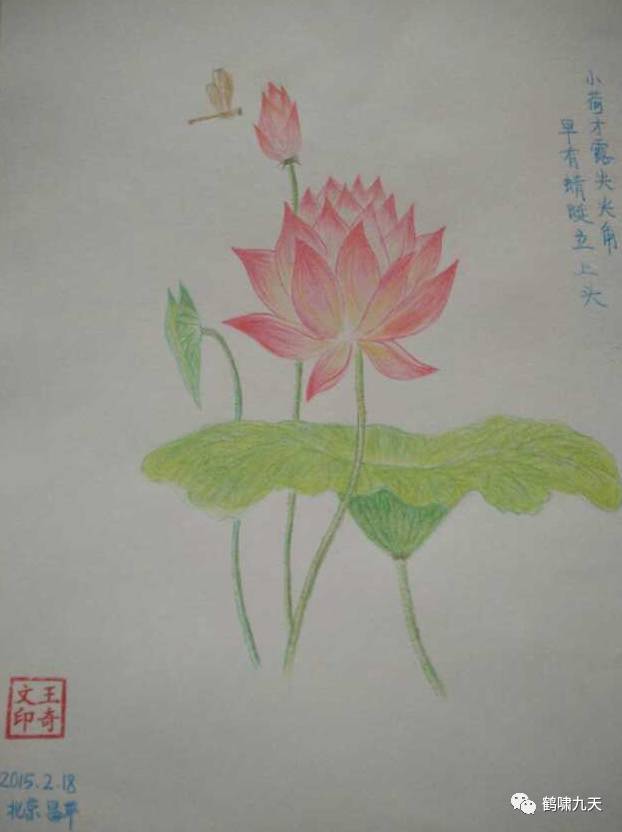 小荷才露尖尖角
早有蜻蜓立上头
王奇
文印
2015.2.18
北京昌平
鹤啸九天